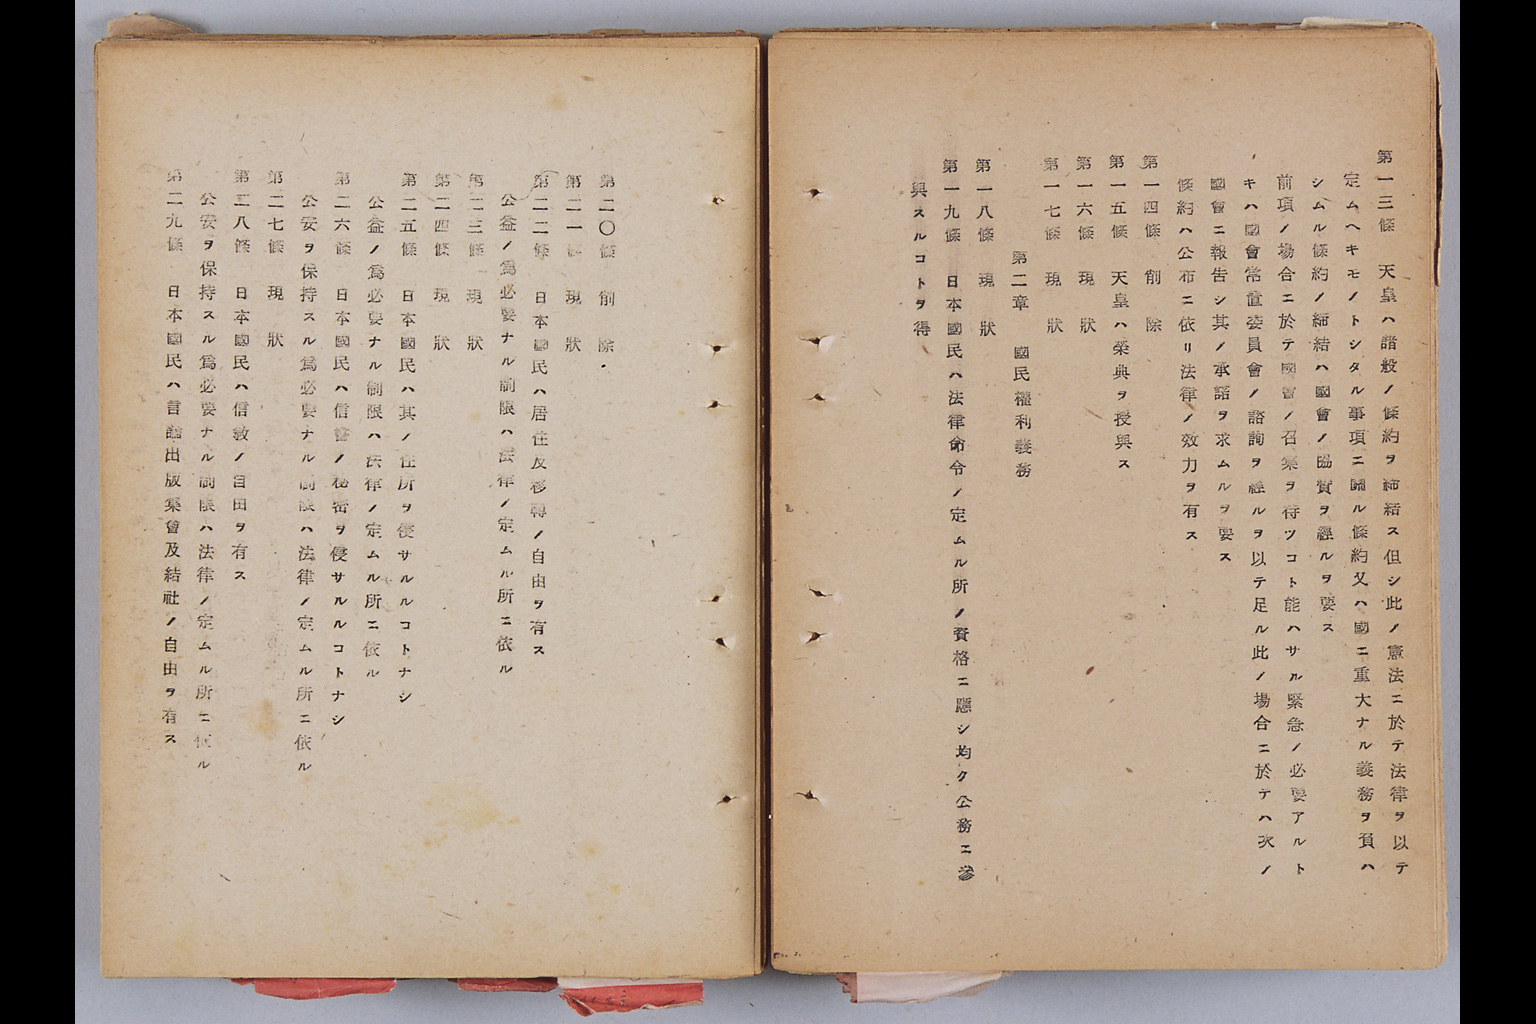 第一三條　天皇ハ諸般ノ條約ヲ締結ス但シ此ノ憲法ニ於テ法律ヲ以テ
定ムヘキモノトシタル事項ニ關ル條約又ハ國ニ重大ナル義務ヲ負ハ
シムル條約ノ締結ハ國會ノ協贊ヲ經ルヲ要ス
前項ノ場合ニ於テ國會ノ召集ヲ待ツコト能ハサル緊急ノ必要アルト
キハ國會常置委員會ノ諮詢ヲ經ルヲ以テ足ル此ノ場合ニ於テハ次ノ
國會ニ報告シ其ノ承諾ヲ求ムルヲ要ス
條約ハ公布ニ依リ法律ノ效力ヲ有ス
第一四條　削　除
第一五條　天皇ハ榮典ヲ授與ス
第一六條　現　狀
第一七條　現　狀
第二章　國民權利義務
第一八條　現　狀
第一九條　日本國民ハ法律命令ノ定ムル所ノ資格ニ應シ均ク公務ニ參
與スルコトヲ得
第二〇條　削　除
第二一條　現　狀
第二二條　日本國民ハ居住及移轉ノ自由ヲ有ス
公益ノ爲必要ナル制限ハ法律ノ定ムル所ニ依ル
第二三條　現　狀
第二四條　現　狀
第二五條　日本國民ハ其ノ住所ヲ侵サルルコトナシ
公益ノ爲必要ナル制限ハ法律ノ定ムル所ニ依ル
第二六條　日本國民ハ信書ノ秘密ヲ侵サルルコトナシ
公安ヲ保持スル爲必要ナル制限ハ法律ノ定ムル所ニ依ル
第二七條　現　狀
第二八條　日本國民ハ信敎ノ自由ヲ有ス
公安ヲ保持スル爲必要ナル制限ハ法律ノ定ムル所ニ依ル
第二九條　日本國民ハ言論出版集會及結社ノ自由ヲ有ス